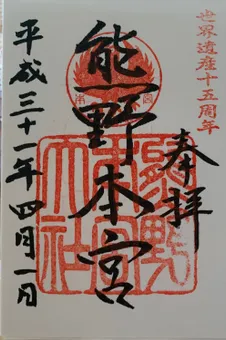 世界遺産十五周年
奉拝
熊野本宮
平成三十一年四月一日
熊野本宮大社